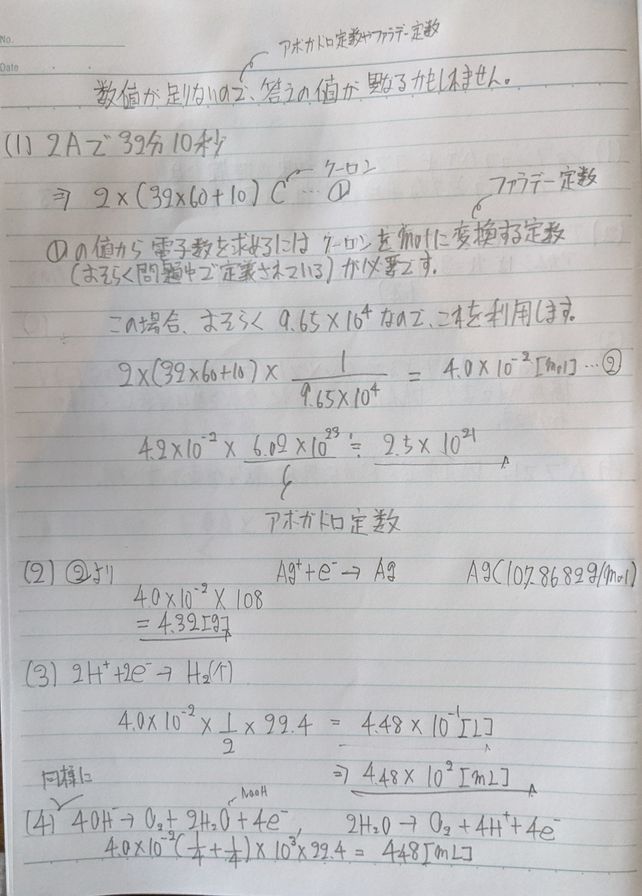 No.
Date
アボガドロ定数やファラデー定数
数値が足りないので、答えの値が異なるかもしれません。
(1) 2Aで32分10秒
⇒ 2×(32×60+10) C … ①
クーロン
ファラデー定数
①の値から電子数を求めるにはクーロンをmolに変換する定数
(おそらく問題中で定義されている)が必要です。
この場合、おそらく 9.65×10⁴ なので、これを利用します。
2×(32×60+10)× 1/9.65×10⁴ = 4.0×10⁻²[mol] … ②
4.2×10⁻² × 6.02×10²³ ≒ 2.5×10²¹
アボガドロ定数
(2) ②より Ag⁺+e⁻→Ag Ag(107.8682g/mol)
4.0×10⁻²×108
= 4.32[g]
(3) 2H⁺+2e⁻→H₂(↑)
4.0×10⁻²×1/2×22.4 = 4.48×10⁻¹[L]
⇒ 4.48×10²[mL]
同様に
NaOH
(4) 4OH⁻→O₂+2H₂O+4e⁻, 2H₂O→O₂+4H⁺+4e⁻
4.0×10⁻²(1/4+1/4)×10³×22.4 = 448[mL]